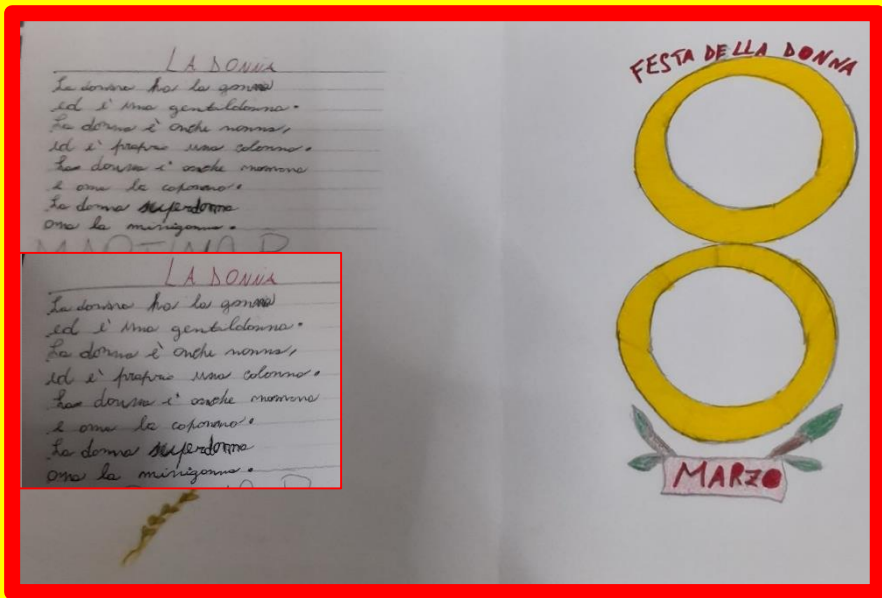 LA DONNA
La donna ha la gonna
ed è una gentildonna.
La donna è anche nonna,
ed è proprio una colonna.
La donna è anche mamma
e ama la capanna.
La donna superdonna
ama la minigonna.
MARTINA R
LA DONNA
La donna ha la gonna
ed è una gentildonna.
La donna è anche nonna,
ed è proprio una colonna.
La donna è anche mamma
e ama la capanna.
La donna superdonna
ama la minigonna.
FESTA DELLA DONNA
8
MARZO